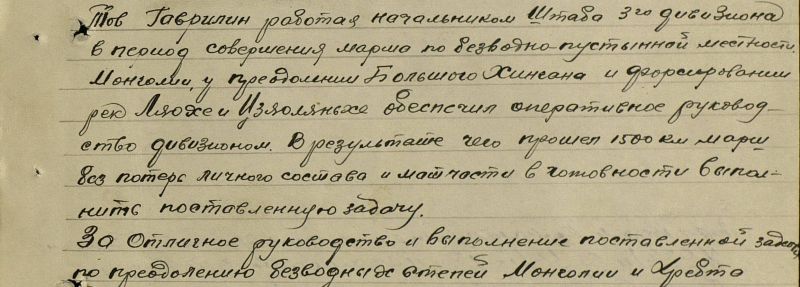 Тов Гаврилин работая начальником Штаба 3го дивизиона
в период совершения марша по безводно-пустынной местности
Монголии, у преодолении Большого Хингана и форсировании
рек Ляохе и Цзяоляньхе обеспечил оперативное руковод-
ство дивизионом. В результате чего прошел 1500 км марш
без потерь личного состава и матчасти в готовности выпол-
нить поставленную задачу.
За Отличное руководство и выполнение поставленной задачи
по преодолению безводных степей Монголии и Хребта